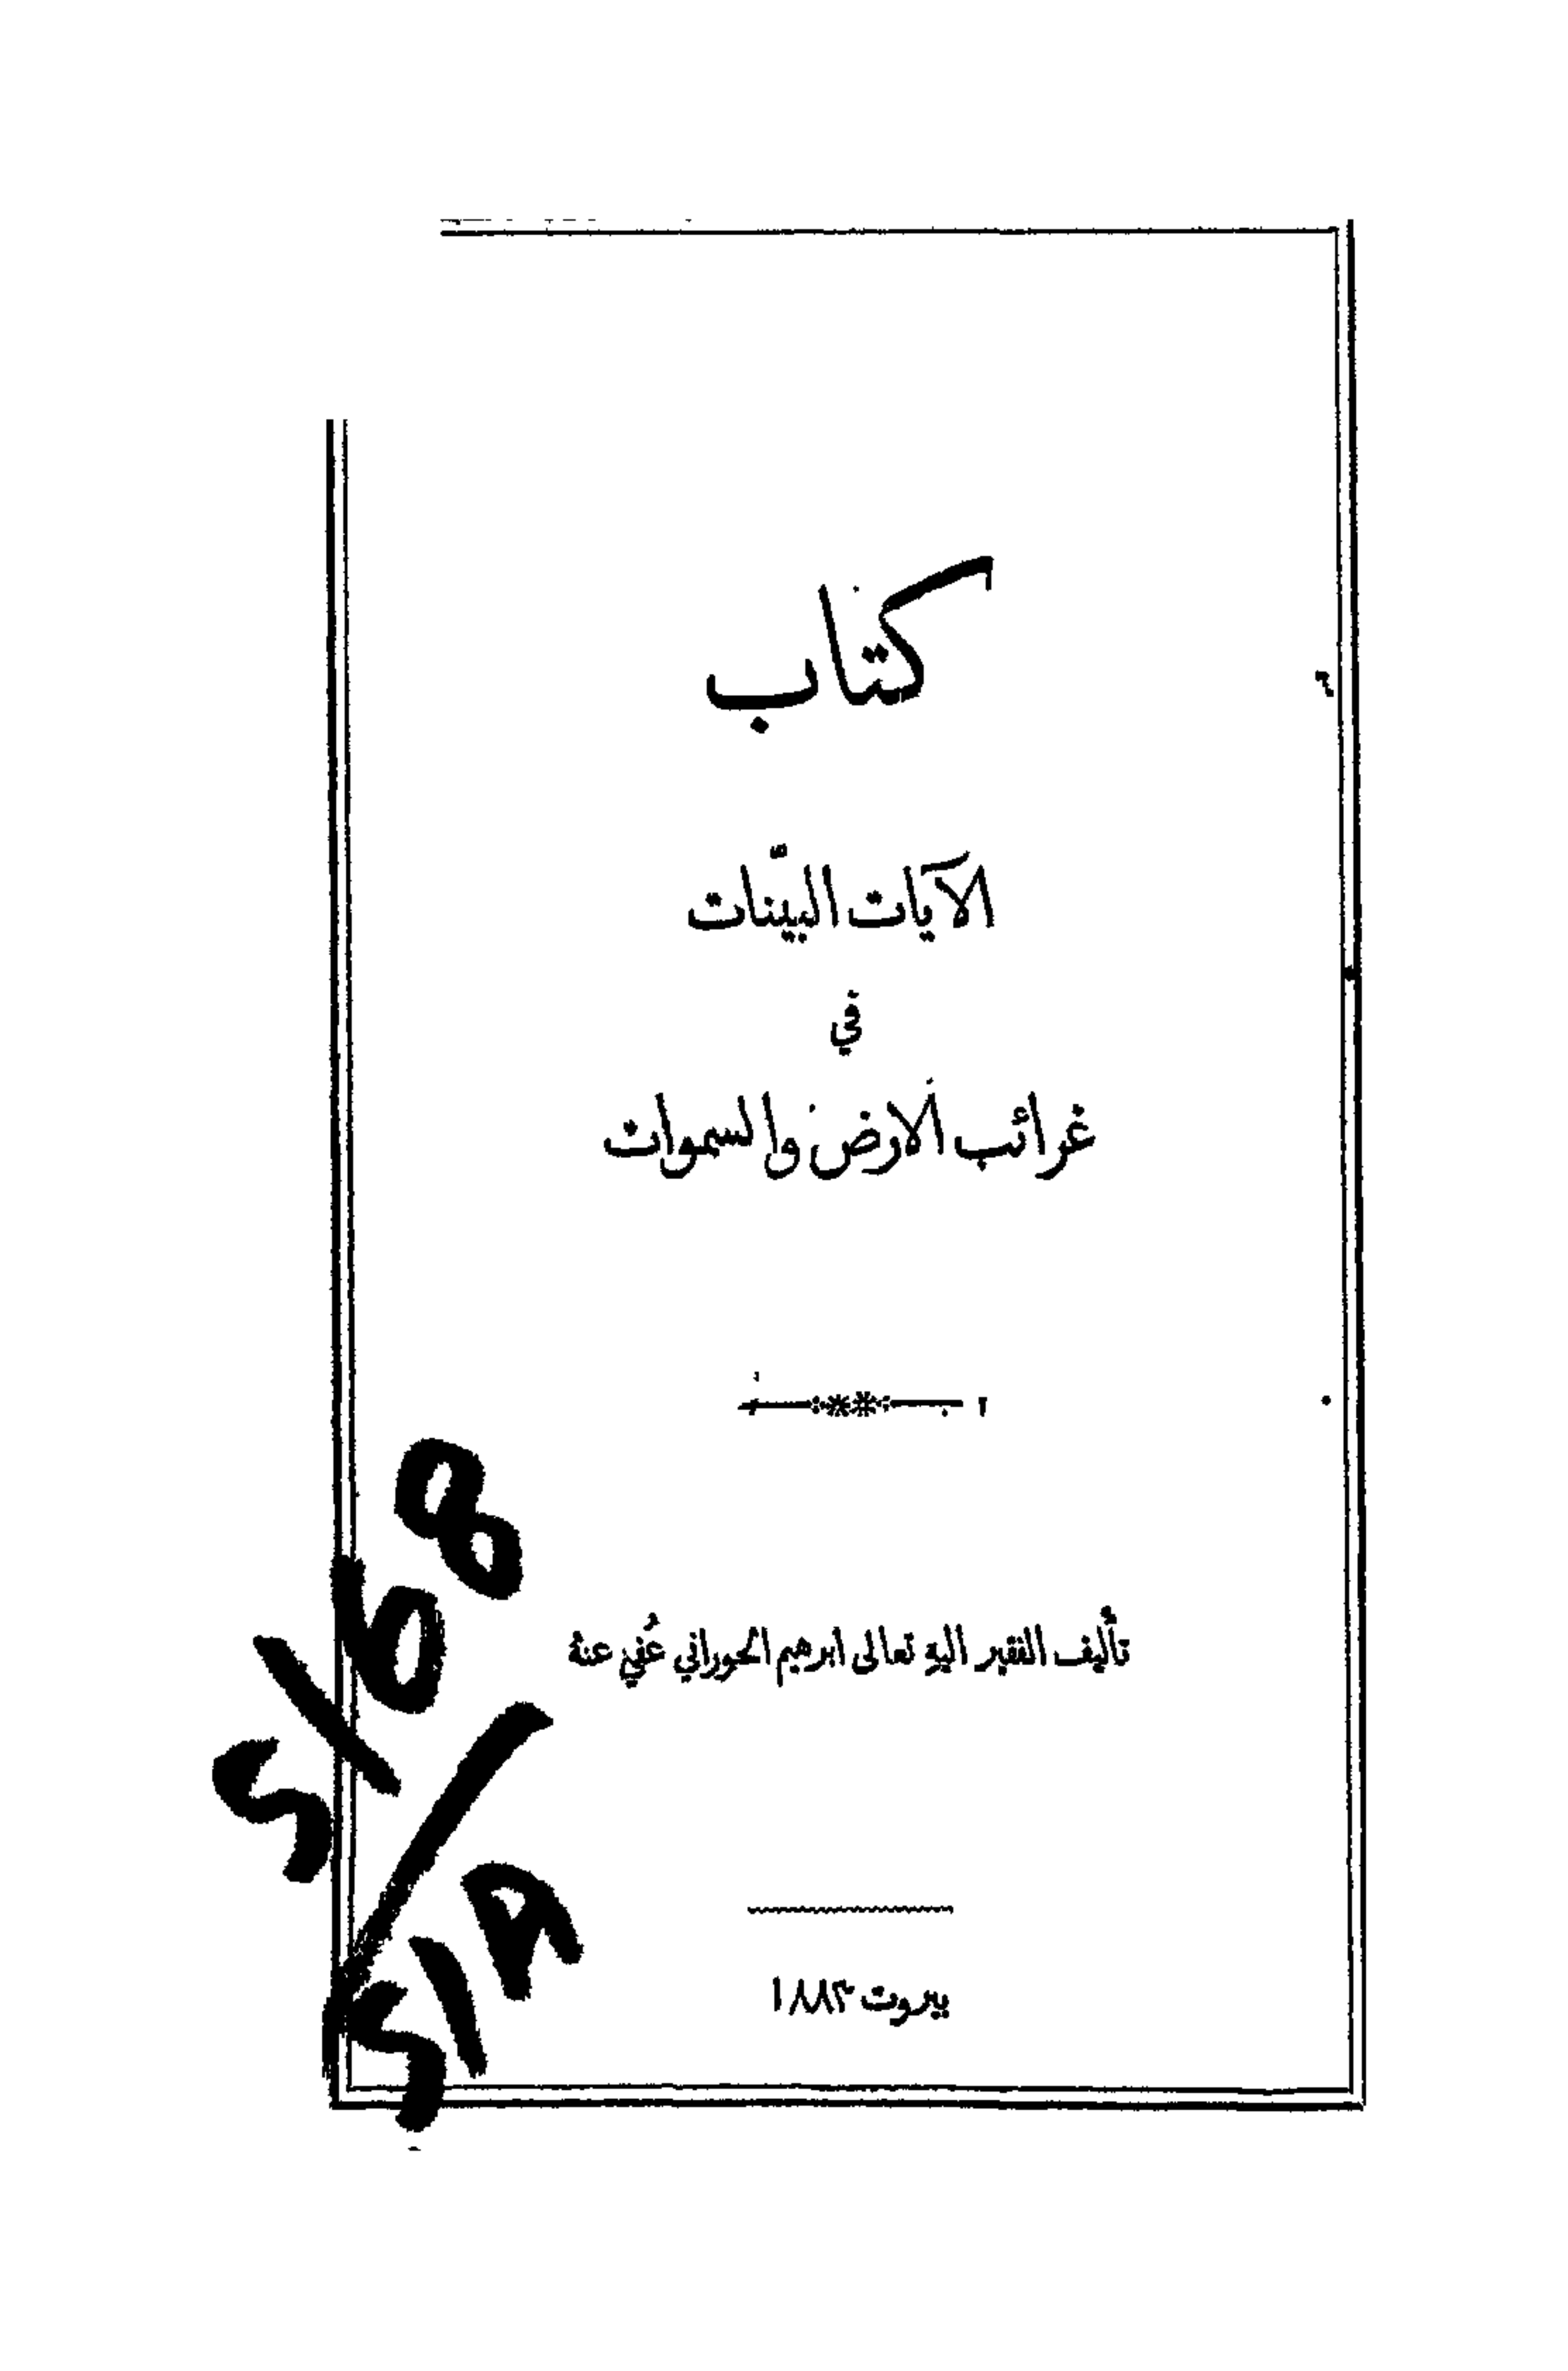 كتاب
الآيات البيّنات
في
غرائب الارض والسموات
تأليف الفقير اليهِ تعالى ابرهيم الحوراني عُفي عنهُ
بيروت ١٨٨٣